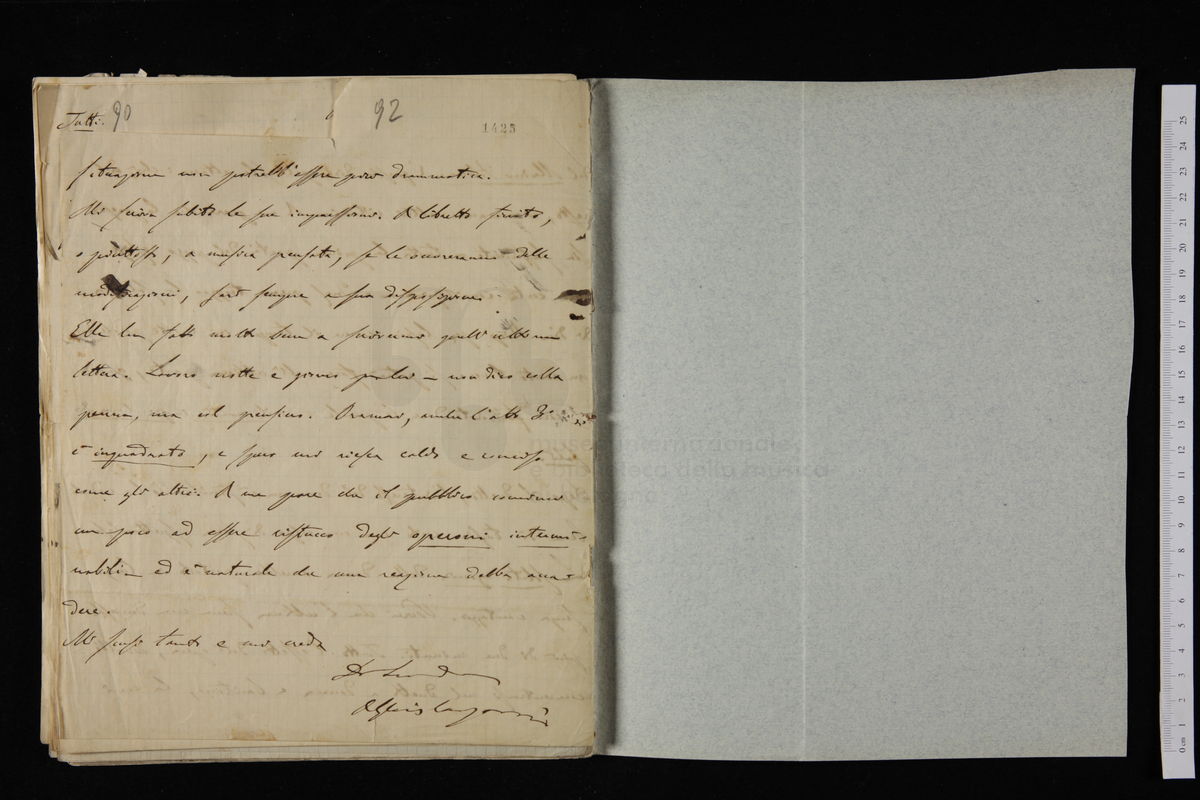 Tutti. 90 92 1425
situazione non potrebb'essere più drammatica.
Mi scriva subito le sue impressioni. A libretto finito,
o piuttosto, a musica pensata, se le occorreranno delle
modificazioni, sarò sempre a sua disposizione.
Ella ha fatto molto bene a scrivermi quell'ultima
lettera. Lavoro notte e giorno per lei – non dico colla
penna, ma col pensiero. Oramai, anche l'atto 3º
è inquadrato, e spero mi riesca caldo e conciso
come gli altri. A me pare che il pubblico cominci
un poco ad essere ristucco degli operoni intermi-
nabili – ed è naturale che una reazione debba acca-
dere.
Mi scusi tanto e mi creda
museo internazionale
e biblioteca della musica
0 cm 1 2 3 4 5 6 7 8 9 10 11 12 13 14 15 16 17 18 19 20 21 22 23 24 25